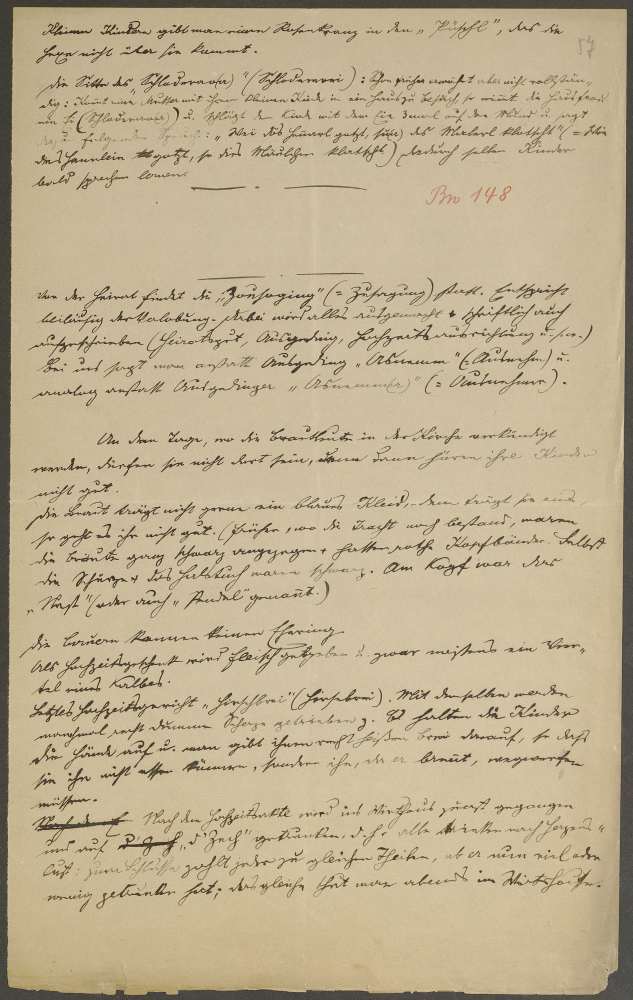 Kleinen Kindern gibt man einen Rosenkranz in den „Püschl“, daß die
Hexe nicht über sie kommt.
57
Die Sitte des „Schloderaara“ (Schlodererei): schon früher erwähnt aber nicht vollstän-
dig: Kommt eine Mutter mit ihrem kleinen Kinde in ein Haus zu Besuch, so nimmt die Hausfrau
ein Ei (Schloderaara) u. schlägt dem Kinde mit dem Ei 3mal auf den Mund u. sagt
dazu folgenden Spruch: „Wai das Hennerl gatzt, das Maularl klatscht“ (= Wie
das Hennlein gatzt, so dies Mäulchen klatscht) dadurch sollen Kinder
bald sprechen lernen.
Bw 148
Vor der Heirat findet die „Zousoging“ (= Zusagung) statt. Entspricht
beiläufig der Verlobung. Dabei wird alles ausgemacht + schriftlich auch
aufgeschrieben (Heiratsgut, Ausgeding, Hochzeitsausrichtung u.s.w.)
Bei uns sagt man anstatt Ausgeding „Osnemm“ (= Ausnehm) u.
analog anstatt Ausgedinger „Osnemmer“ (= Ausnehmer).
An dem Tage, wo die Brautleute in der Kirche verkündigt
werden, dürfen sie nicht dort sein, denn dann hören ihre Kinder
nicht gut.
Die Braut trägt nicht gerne ein blaues Kleid, denn trägt sie eins
so geht es ihr nicht gut. (Früher, wo die Tracht noch bestand, waren
die Bräute ganz schwarz angezogen + hatten rothe Kopfbänder. Selbst
die Schürze + das Halstuch waren schwarz. Am Kopf war das
„Nest“ (oder auch „Pendel“ genannt.)
Die Bauern kannen keinen Ehering
Als Hochzeitsgeschenk wird Fleisch gegeben u. zwar meistens ein Vier-
tel eines Kalbes.
Letztes Hochzeitsgericht „Hirschbrei“ (Hirsebrei). Mit demselben werden
manchmal recht dumme Späße getrieben z. B. halten die Kinder
die Hände auf u. man gibt ihnen recht heißen Brei darauf, so daß
sie ihn nicht essen können, sondern ihn, da er brennt, wegwerfen
müssen.
Nach dem Hochzeitsakte wird ins Wirthaus zuerst gegangen
und auf „d' Zech“ getrunken, d. h. alle trinken nach Herzens-
lust: zum Schlusse zahlt jeder zu gleichen Theilen, ob er nun viel oder
wenig getrunken hat; desgleichen thut man abends im Wirtshause.